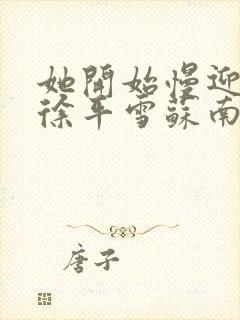 她開始慢迎
徐平雪蘇南
唐子